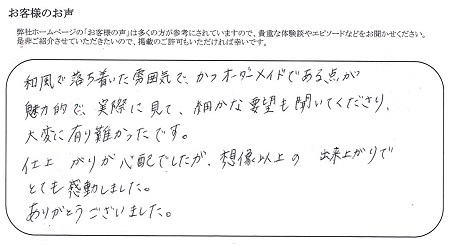 お客様のお声
弊社ホームページの「お客様の声」は多くの方が参考にされていますので、貴重な体験談やエピソードなどをお聞かせください。
是非ご紹介させていただきたいので、掲載のご許可もいただければ幸いです。
和風で落ち着いた雰囲気で、かつオーダーメイドである点が
魅力的で、実際に見て、細かな要望も聞いてくださり、
大変に有り難かったです。
仕上がりが心配でしたが、想像以上の 出来上がりで
とても感動しました。
ありがとうございました。